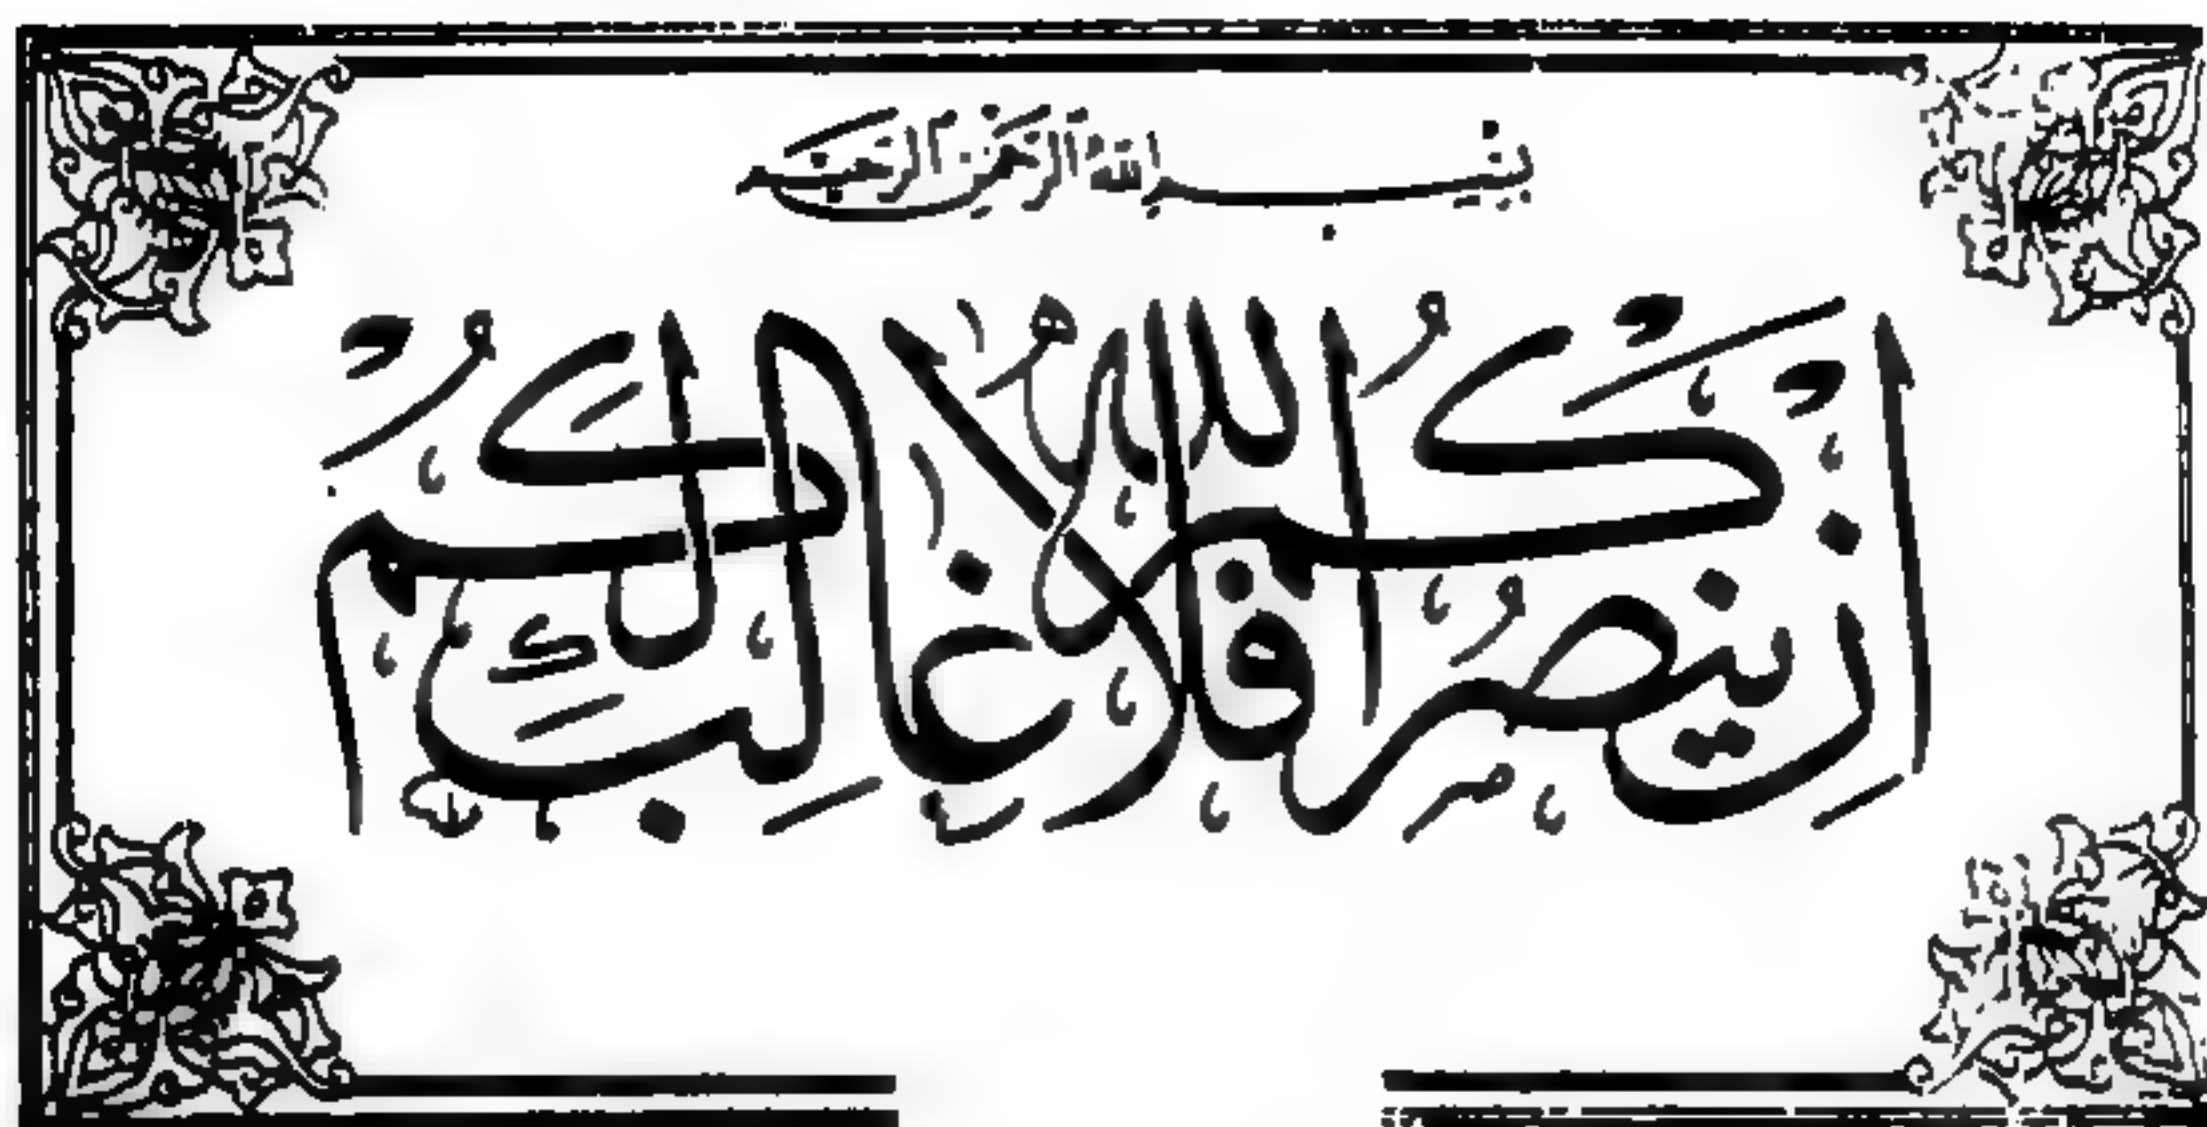 بِسْمِ اللّٰهِ الرَّحْمٰنِ الرَّحِيْمِ
اِنْ يَنْصُرْكُمُ اللّٰهُ فَلَا غَالِبَ لَكُمْ